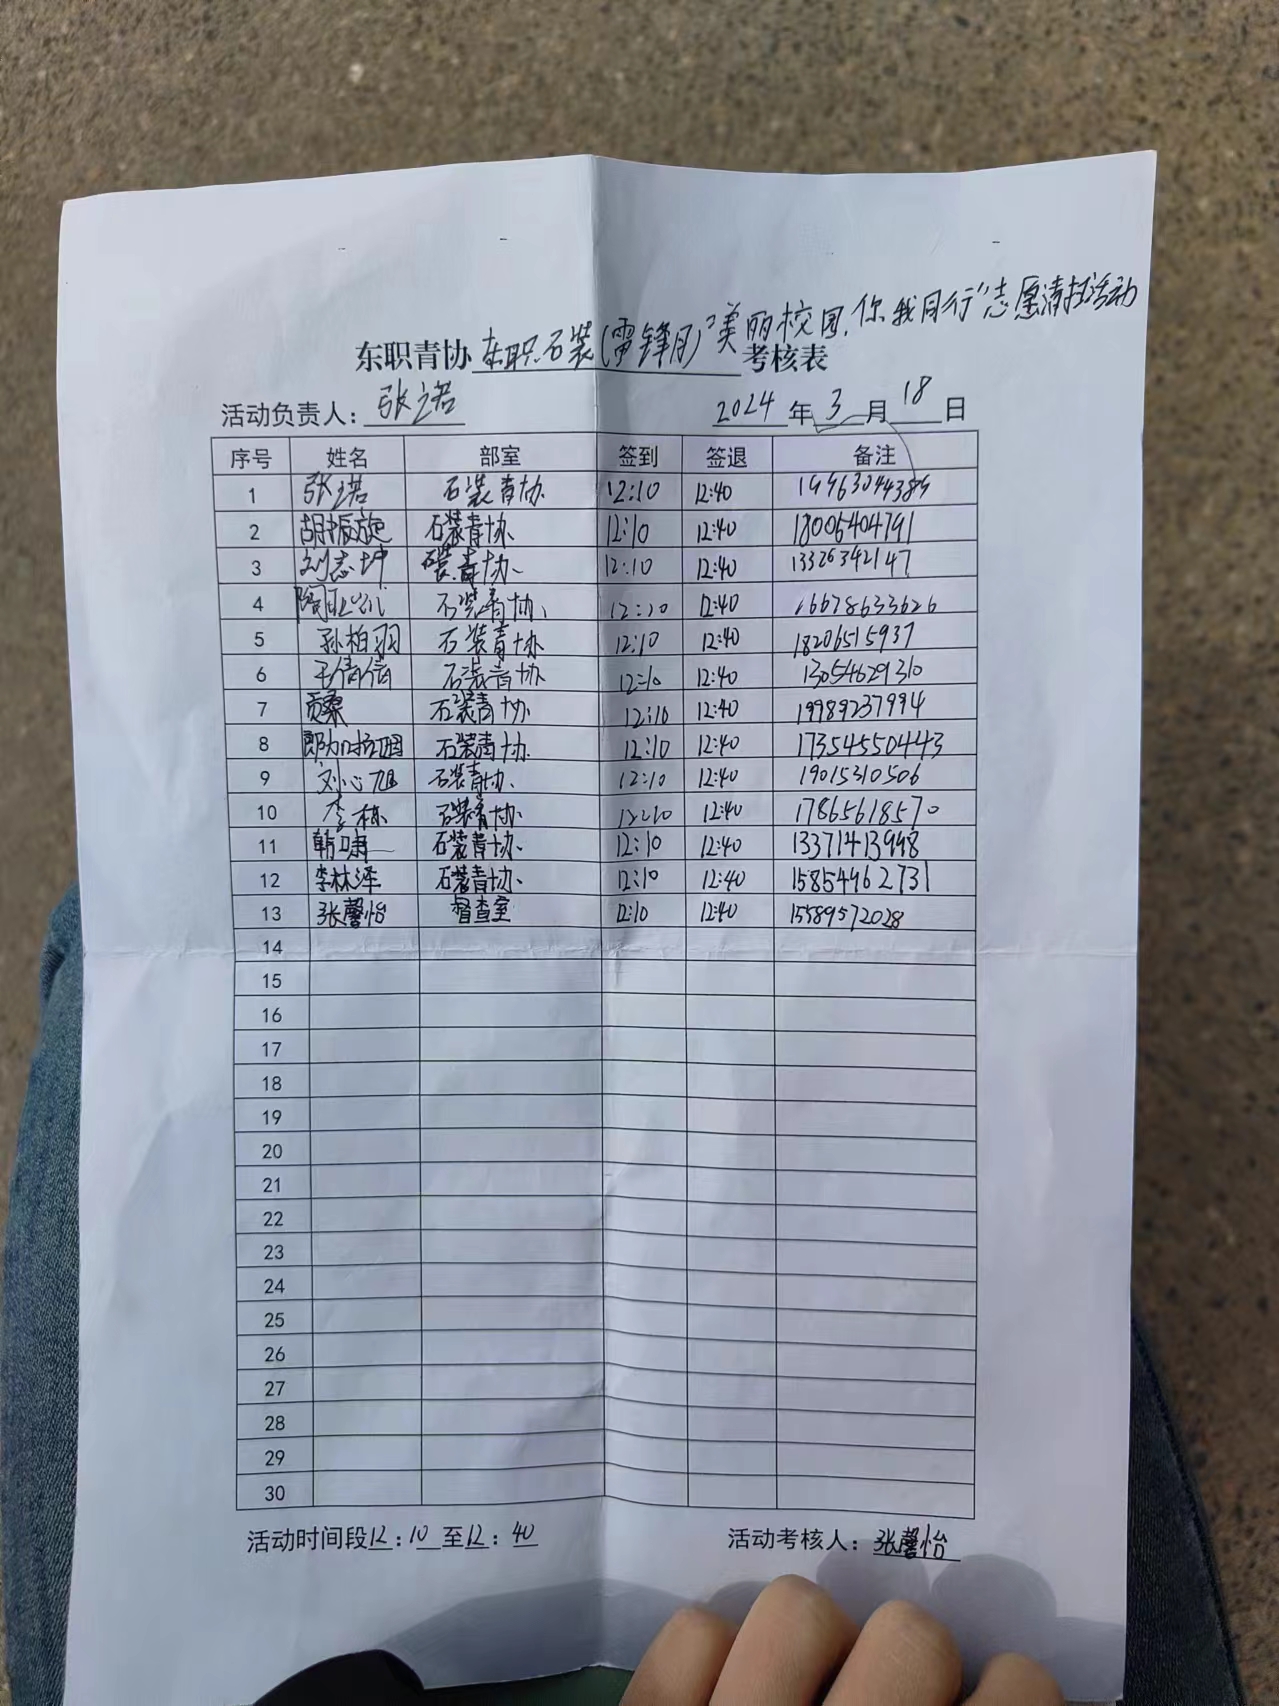 东职石装(雷锋月)"美丽校园,你我同行"志愿清扫活动
东职青协 考核表
活动负责人: 张诺 2024 年 3 月 18 日
序号 姓名 部室 签到 签退 备注
1 张诺 石装青协 12:10 12:40 19963044389
2 胡振旋 石装青协 12:10 12:40 18006404791
3 刘志坤 石装青协 12:10 12:40 13326342147
4 石装青协 12:10 12:40 16678633626
5 孙柏羽 石装青协 12:10 12:40 18206515937
6 王倩倩 石装青协 12:10 12:40 13054629310
7 贡桑 石装青协 12:10 12:40 19989237994
8 石装青协 12:10 12:40 17354550443
9 刘心旭 石装青协 12:10 12:40 19015310506
10 李栋 石装青协 12:10 12:40 17865618570
11 韩啸 石装青协 12:10 12:40 13371413998
12 李林泽 石装青协 12:10 12:40 15854962731
13 张馨怡 督查室 12:10 12:40 15589572028
14
15
16
17
18
19
20
21
22
23
24
25
26
27
28
29
30
活动时间段12:10至12:40 活动考核人: 张馨怡